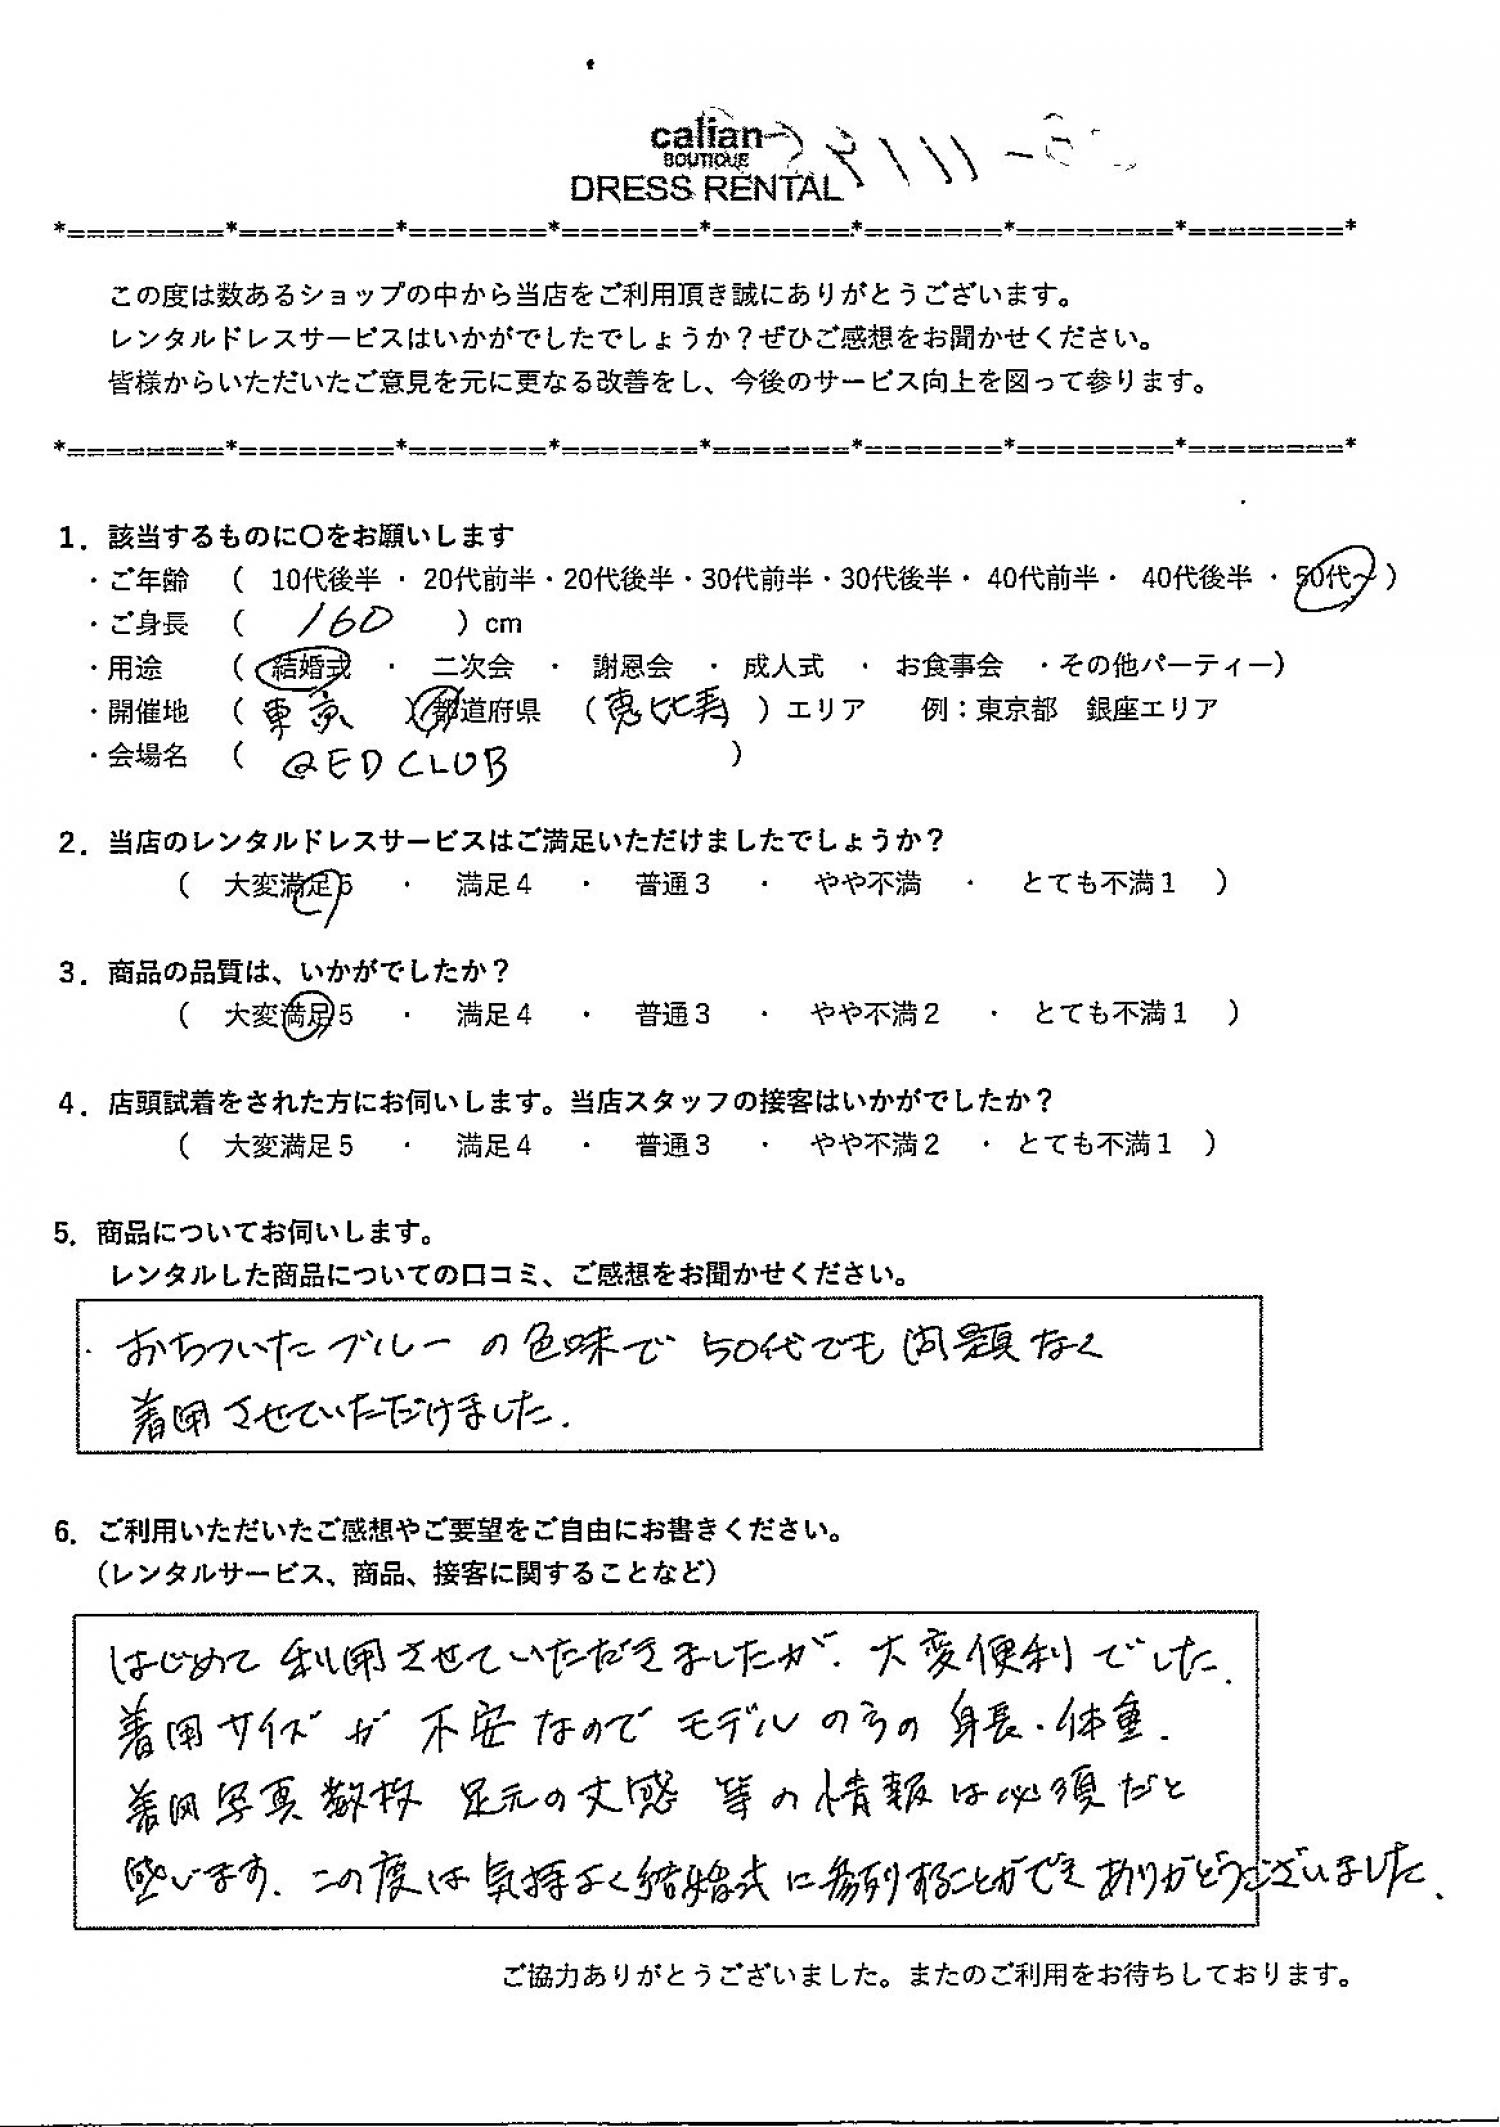 calian
BOUTIQUE
DRESS RENTAL
*========*========*=======*=======*=======*=======*========*========*
この度は数あるショップの中から当店をご利用頂き誠にありがとうございます。
レンタルドレスサービスはいかがでしたでしょうか？ぜひご感想をお聞かせください。
皆様からいただいたご意見を元に更なる改善をし、今後のサービス向上を図って参ります。
*========*========*=======*=======*=======*=======*========*========*
1．該当するものに〇をお願いします
・ご年齢 （ 10代後半 ・ 20代前半・20代後半・30代前半・30代後半・ 40代前半・ 40代後半 ・ 50代～ ）
・ご身長 （ 160 ）cm
・用途 （ 結婚式 ・ 二次会 ・ 謝恩会 ・ 成人式 ・ お食事会 ・その他パーティー）
・開催地 （ 東京 ）都道府県 （ 恵比寿 ）エリア 例：東京都 銀座エリア
・会場名 （ QED CLUB ）
2．当店のレンタルドレスサービスはご満足いただけましたでしょうか？
（ 大変満足5 ・ 満足4 ・ 普通3 ・ やや不満 ・ とても不満1 ）
3．商品の品質は、いかがでしたか？
（ 大変満足5 ・ 満足4 ・ 普通3 ・ やや不満2 ・ とても不満1 ）
4．店頭試着をされた方にお伺いします。当店スタッフの接客はいかがでしたか？
（ 大変満足5 ・ 満足4 ・ 普通3 ・ やや不満2 ・ とても不満1 ）
5．商品についてお伺いします。
レンタルした商品についての口コミ、ご感想をお聞かせください。
おちついたブルーの色味で 50代でも問題なく
着用させていただけました.
6．ご利用いただいたご感想やご要望をご自由にお書きください。
（レンタルサービス、商品、接客に関することなど）
はじめて利用させていただきましたが、大変便利でした.
着用サイズが不安なので モデルの方の身長・体重.
着用写真数枚 足元の丈感 等の情報は必須だと
思います. この度は気持よく結婚式に参列することができ ありがとうございました.
ご協力ありがとうございました。またのご利用をお待ちしております。